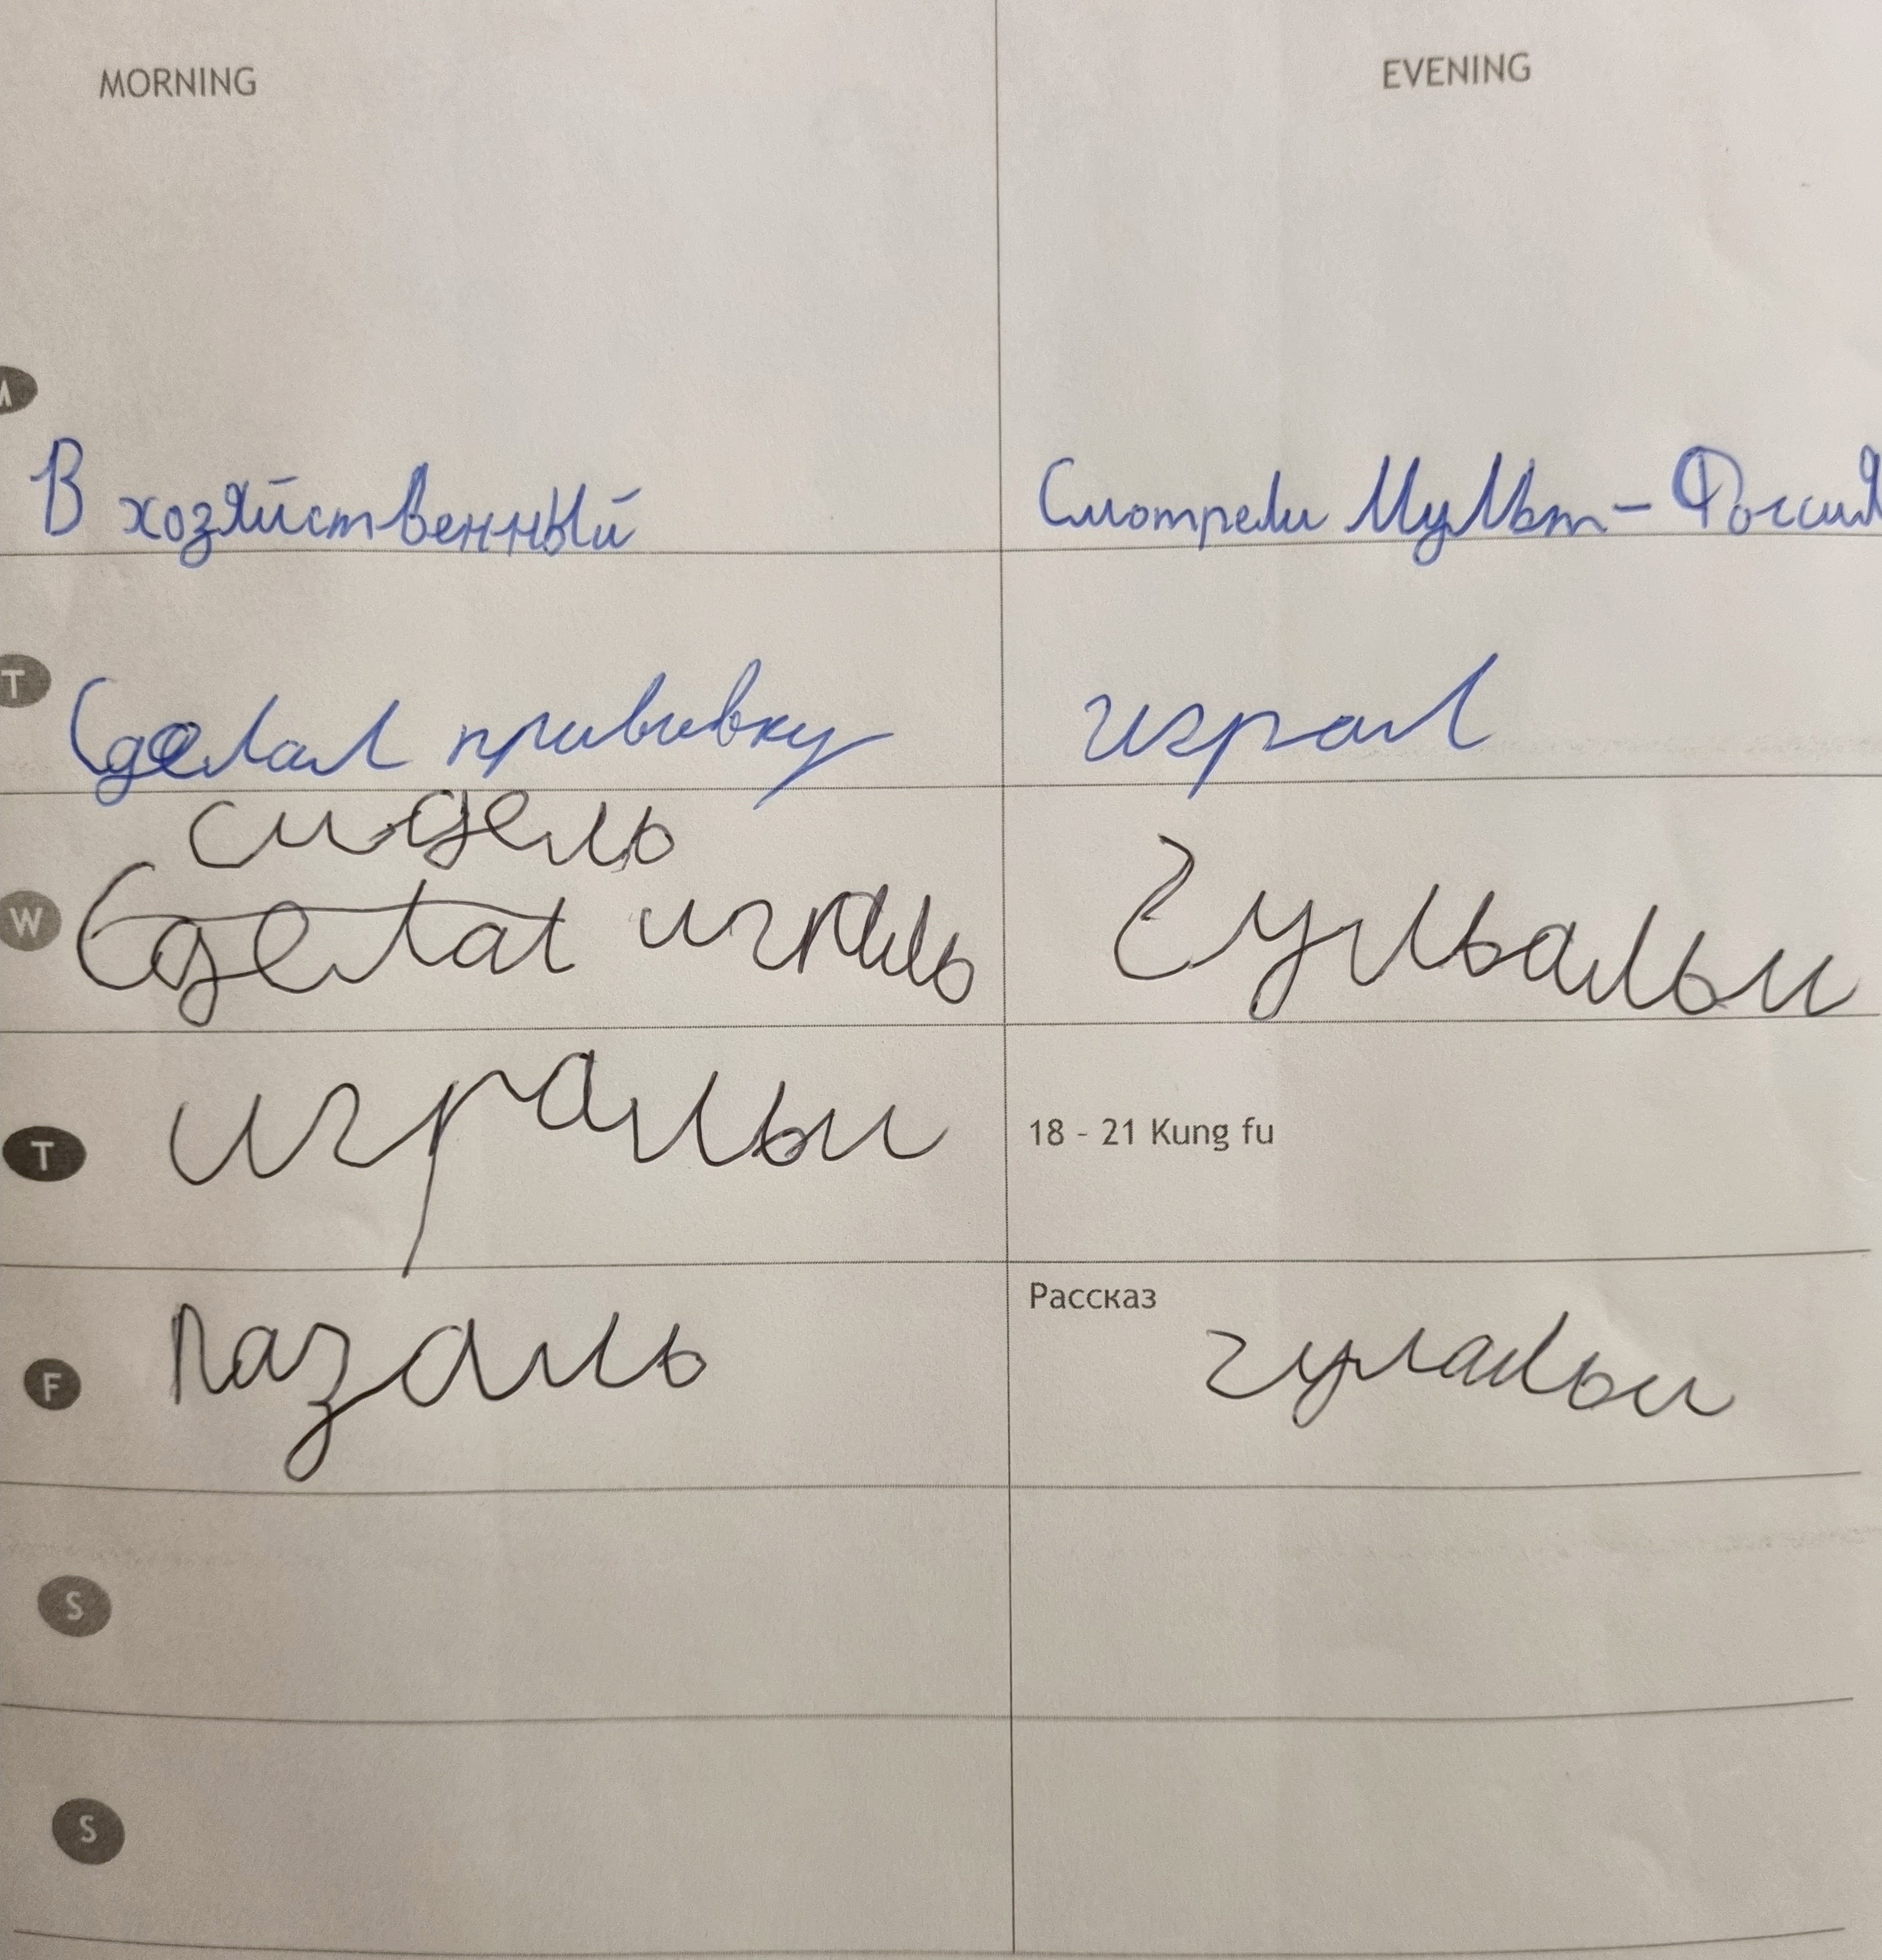 MORNING EVENING
M
В хозяйственный Смотрели Мульт-
T
Сделал прививку играл
сидель
W Сделал играль Гульальи
T игральи 18 - 21 Kung fu
Рассказ
F лазаль гулальи
S
S